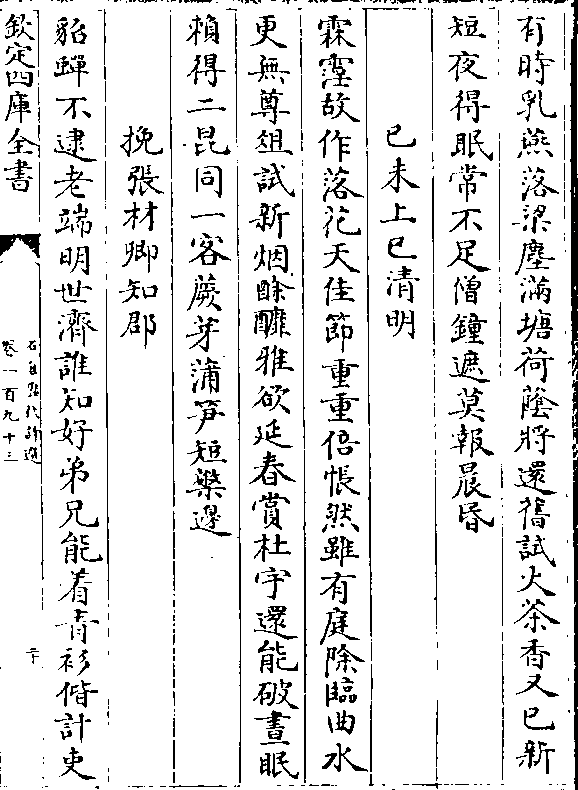 有時乳燕落梁塵滿塘荷蔭將還舊試火茶香又已新
短夜得眠常不足僧鐘遮莫報晨昏
己未上巳清明
霖霪故作落花天佳節重重倍悵然雖有庭除臨曲水
更無尊俎試新烟酴醿雅欲延春賞杜宇還能破晝眠
賴得二昆同一客蕨芽蒲笋短檠邊
挽張材卿知郡
貂蟬不逮老端明世濟誰知好弟兄能着青衫偕計吏
欽定四庫全書
石倉歷代詩選
卷一百九十三
二十